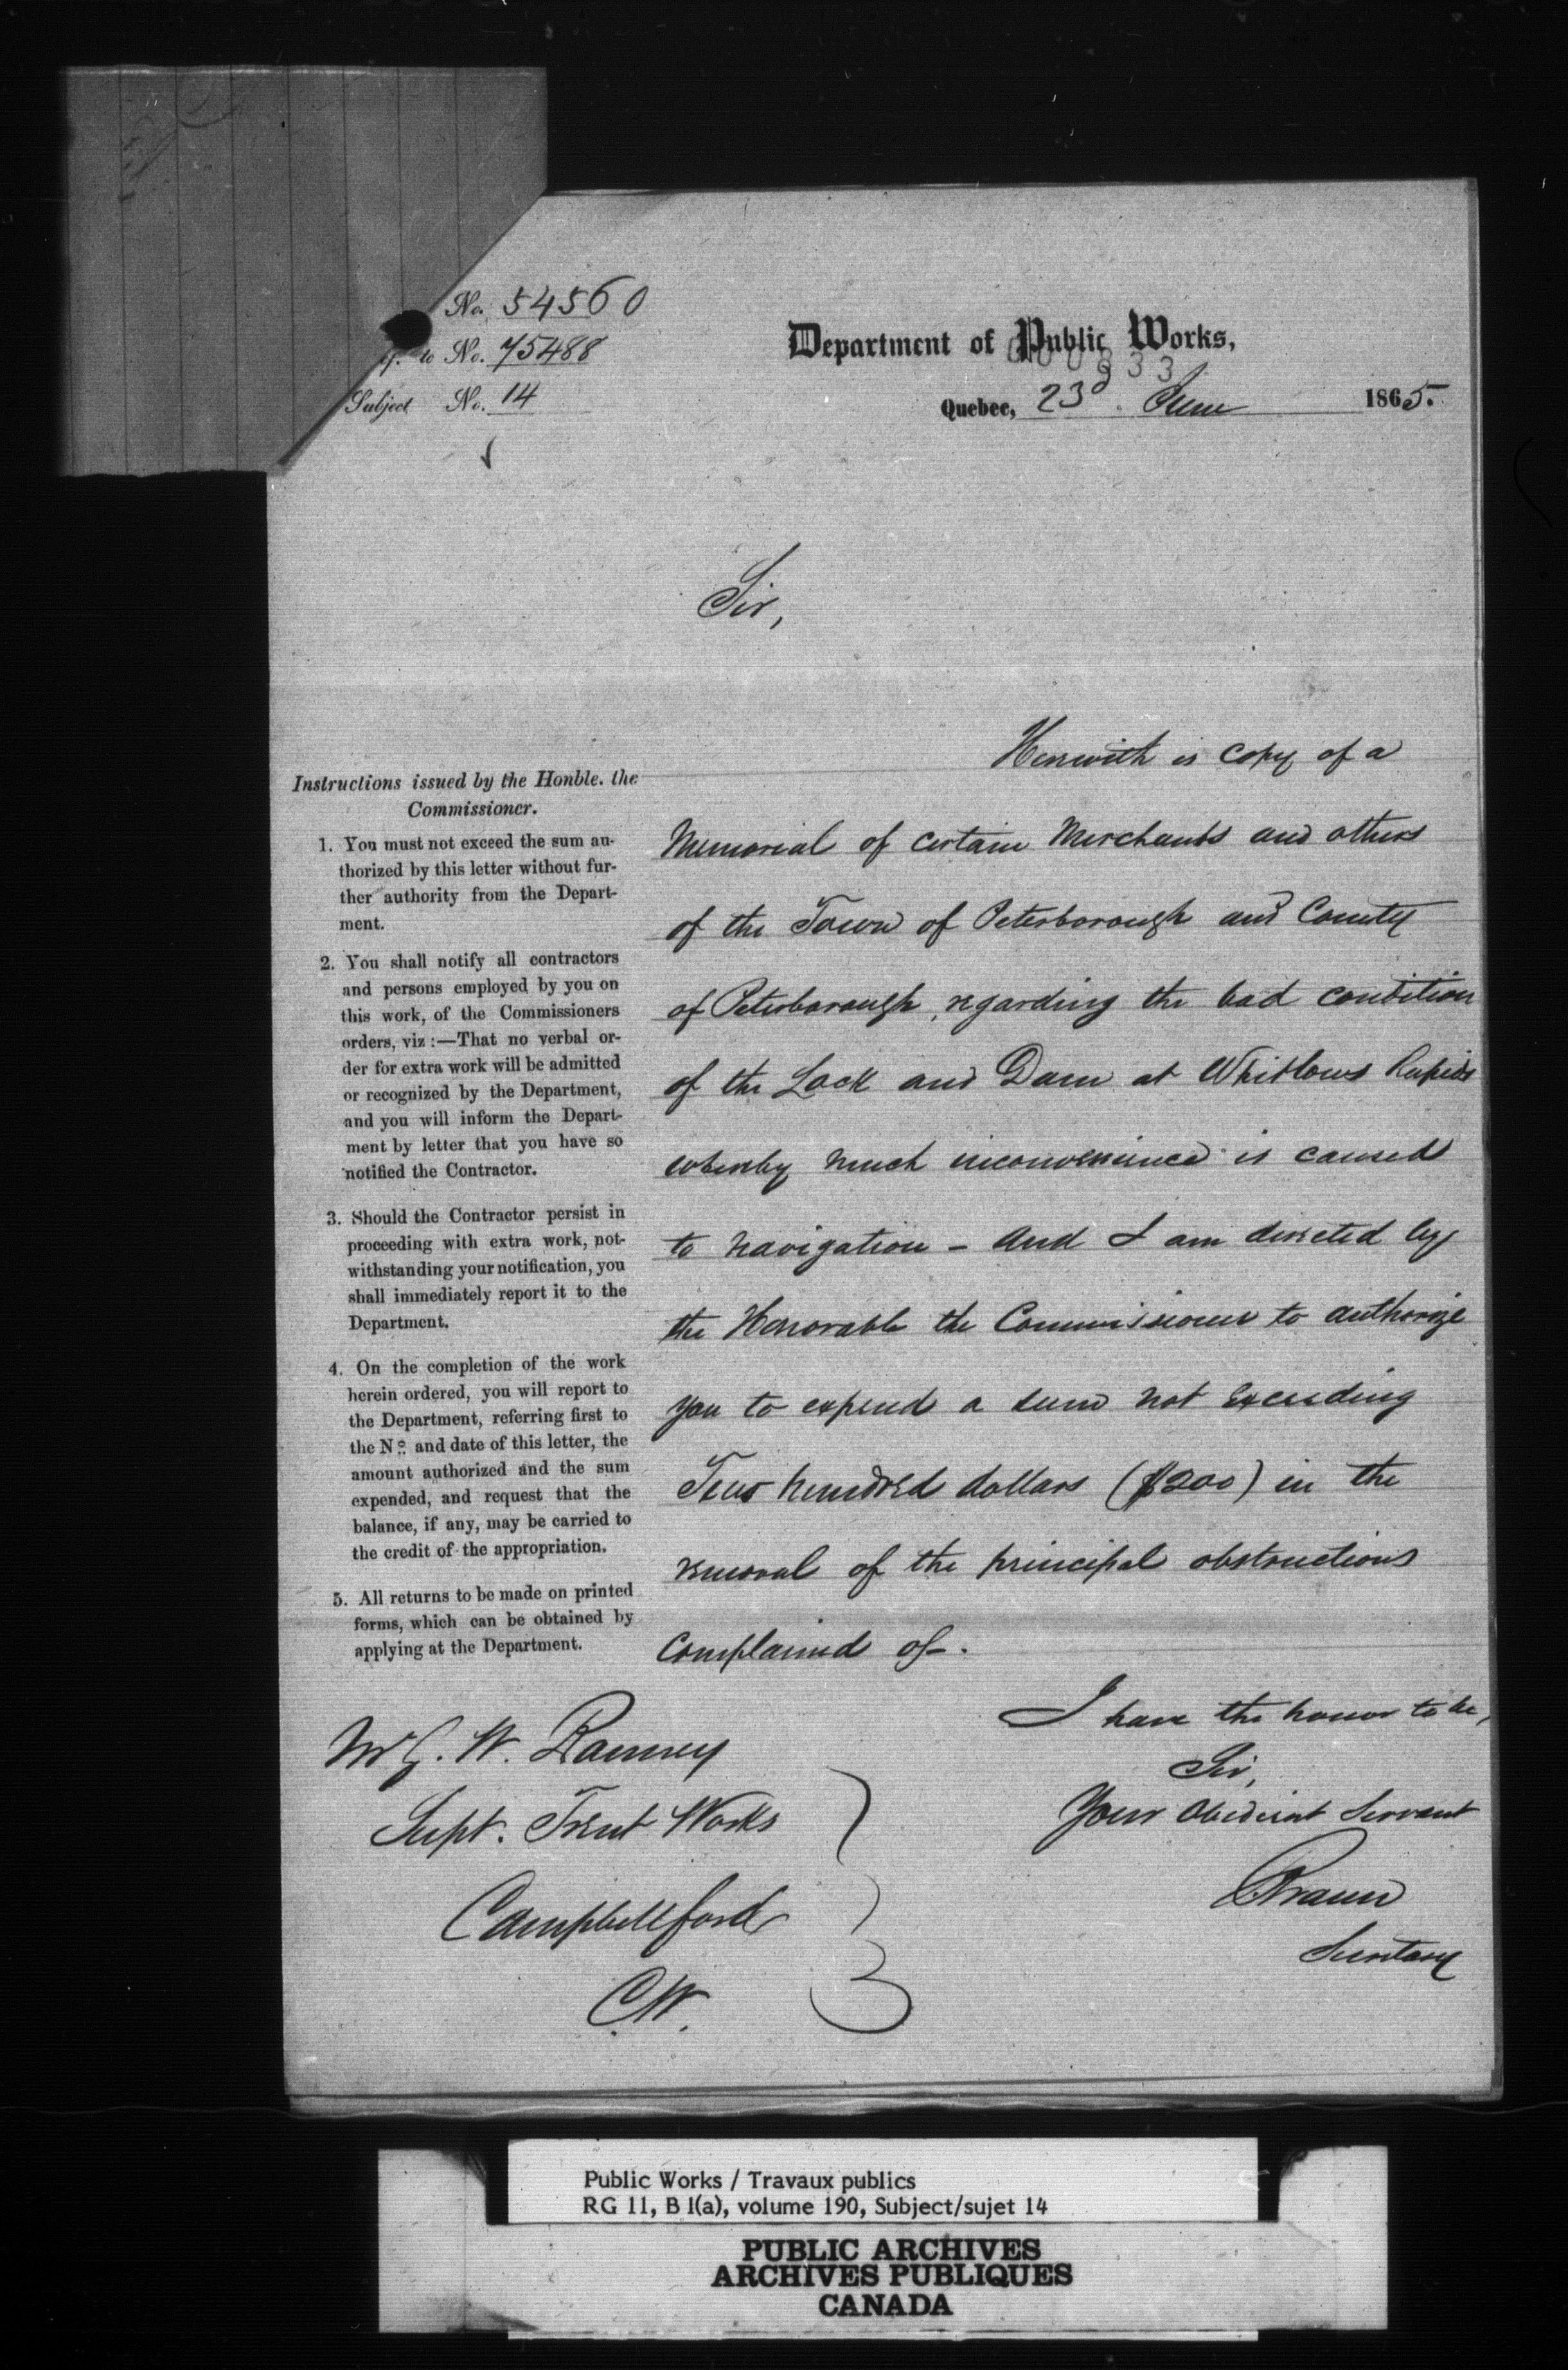 No. 54560
to No. 75488
Subject No. 14
Department of Public Works,
Quebec, 23d. June 1865.
Sir,
Herewith is copy of a
Memorial of certain Merchants and others
of the Town of Peterborough and County
of Peterborough, regarding the bad condition
of the Lock and Dam at Whitlows Rapids
whereby much inconvenience is caused
to navigation - and I am directed by
the Honorable the Commissioner to authorize
you to expend a sum not exceeding
Two hundred dollars ($200) in the
removal of the principal obstructions
complained of.
Instructions issued by the Honble. the
Commissioner.
1. You must not exceed the sum au-
thorized by this letter without fur-
ther authority from the Depart-
ment.
2. You shall notify all contractors
and persons employed by you on
this work, of the Commissioners
orders, viz :—That no verbal or-
der for extra work will be admitted
or recognized by the Department,
and you will inform the Depart-
ment by letter that you have so
notified the Contractor.
3. Should the Contractor persist in
proceeding with extra work, not-
withstanding your notification, you
shall immediately report it to the
Department.
4. On the completion of the work
herein ordered, you will report to
the Department, referring first to
the No. and date of this letter, the
amount authorized and the sum
expended, and request that the
balance, if any, may be carried to
the credit of the appropriation.
5. All returns to be made on printed
forms, which can be obtained by
applying at the Department.
I have the honor to be,
Sir,
Your Obedient Servant
Braun
Secretary
Mr G. W. Ranney
Supt. Trent Works
Campbellford
C.W.
Public Works / Travaux publics
RG 11, B 1(a), volume 190, Subject/sujet 14
PUBLIC ARCHIVES
ARCHIVES PUBLIQUES
CANADA